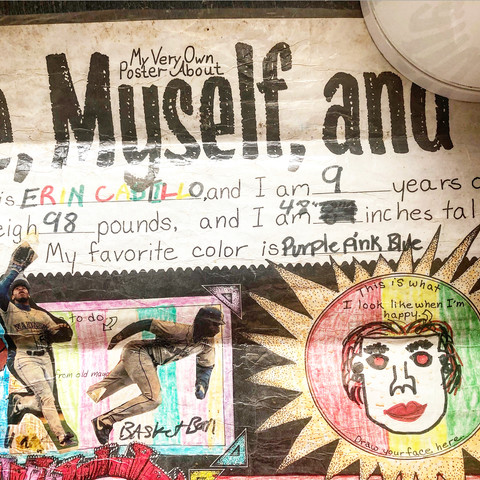 My Very Own
Poster About
e, Myself, and
is ERIN CASTILLO, and I am 9 years o
eigh 98 pounds, and I am 48" inches tal
My favorite color is Purple Pink Blue
to do
from old mag
BASketBall
This is what
I look like when I'm
happy.
Draw your face here